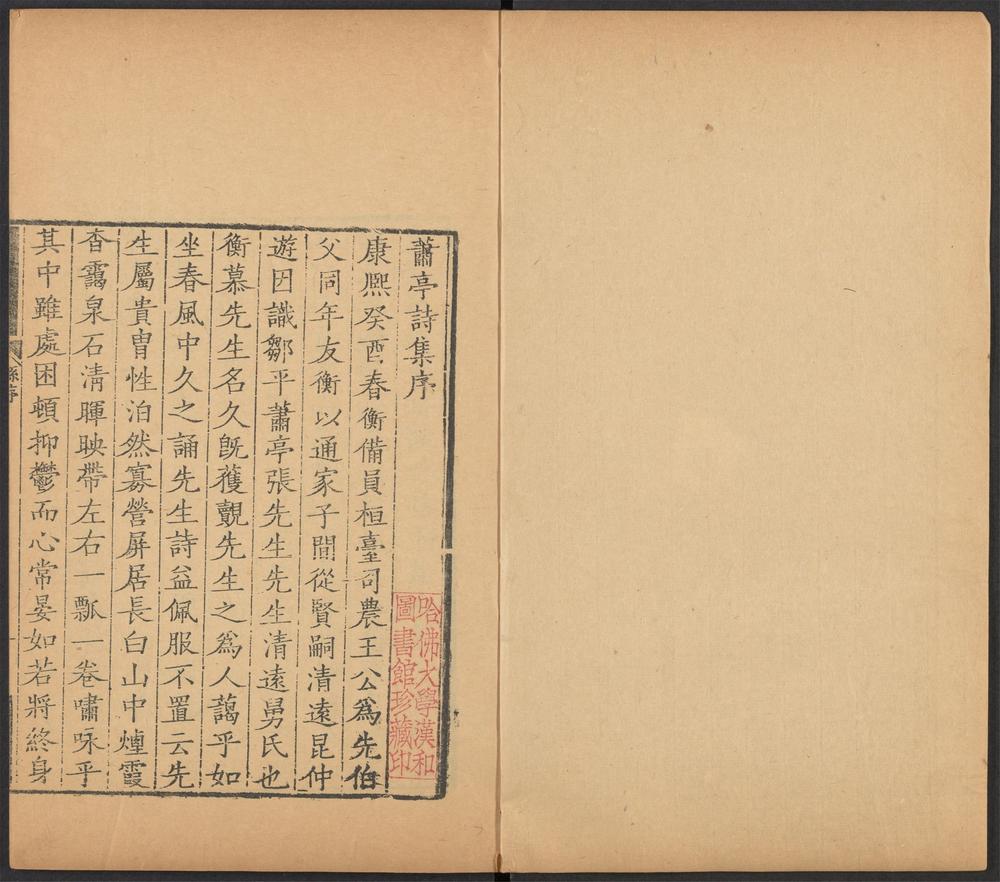 蕭亭詩集序
康熈癸酉春衡備員桓臺司農王公爲先伯
父同年友衡以通家子間從賢嗣清遠昆仲
遊因識鄒平蕭亭張先生先生清遠舅氏也
衡慕先生名久旣獲覿先生之爲人藹乎如
坐春風中久之誦先生詩益佩服不置云先
生屬貴胄性泊然寡營屏居長白山中煙霞
杳靄泉石淸暉映帶左右一瓢一卷嘯咏乎
其中雖處困頓抑鬱而心常晏如若將終身
孫序
哈佛大學漢和
圖書館珍藏印